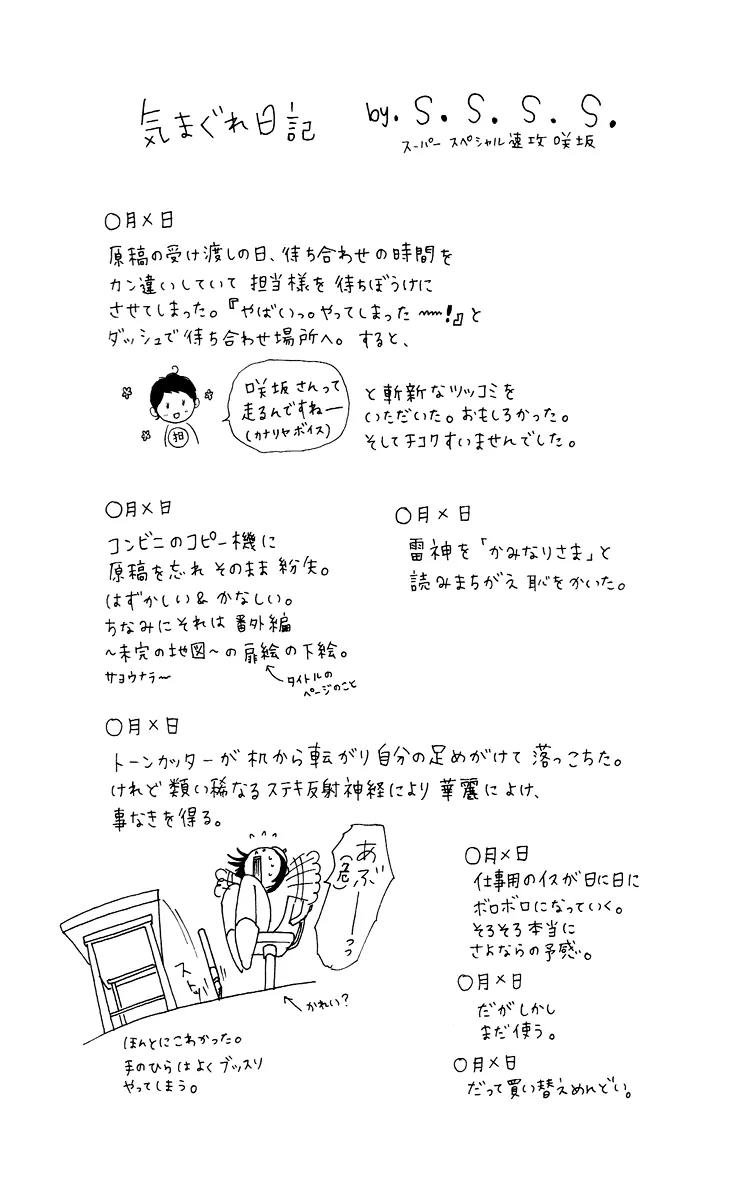 気まぐれ日記
by. S. S. S. S.
スーパー スペシャル 速攻 咲坂
〇月×日
原稿の受け渡しの日、待ち合わせの時間を
カン違いしていて 担当様を 待ちぼうけに
させてしまった。『やばいっ。やってしまった〰!』と
ダッシュで待ち合わせ場所へ。 すると、
咲坂さんって
走るんですねー
(カナリヤボイス)
担
と斬新なツッコミを
いただいた。おもしろかった。
そしてチコクすいませんでした。
〇月×日
コンビニのコピー機に
原稿を忘れ そのまま 紛失。
はずかしい & かなしい。
ちなみにそれは 番外編
~未完の地図~の扉絵の下絵。
サヨウナラ~
タイトルの
ページのこと
〇月×日
雷神を「かみなりさま」と
読みまちがえ 恥をかいた。
〇月×日
トーンカッターが 机から転がり 自分の足めがけて 落っこちた。
けれど 類い稀なる ステキ反射神経により 華麗によけ、
事なきを得る。
あぶーっっ
(危)
ストッ
かれい?
ほんとにこわかった。
手のひらはよく ブッスリ
やってしまう。
〇月×日
仕事用のイスが日に日に
ボロボロになっていく。
そろそろ本当に
さよならの予感。
〇月×日
だがしかし
まだ使う。
〇月×日
だって買い替えめんどい。